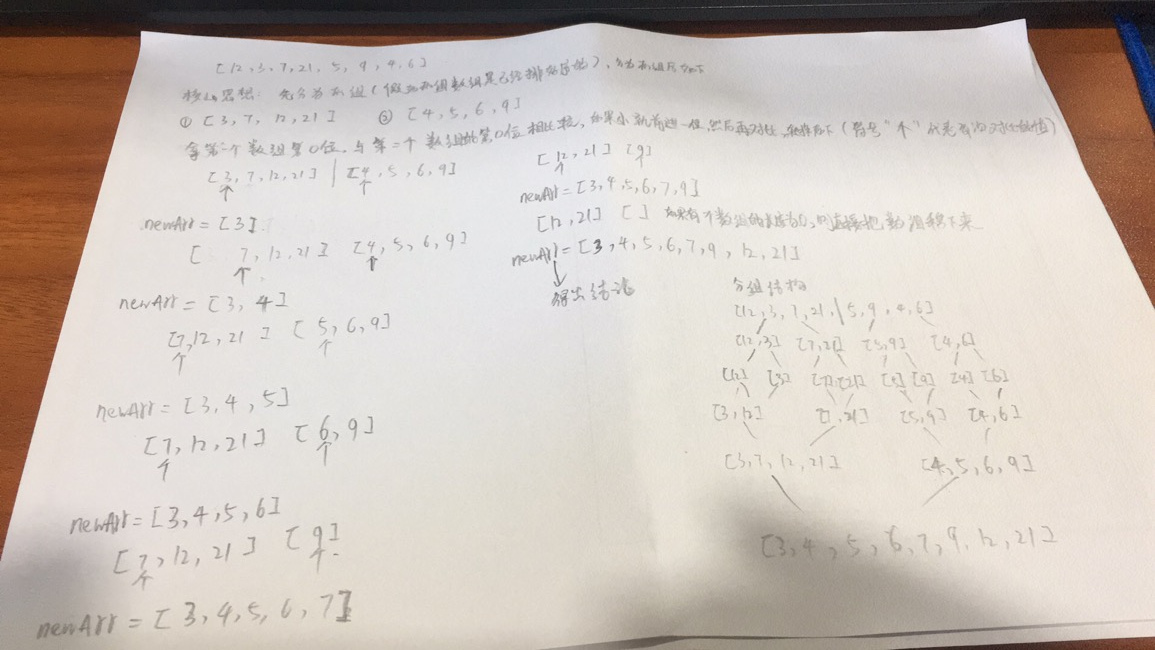 [12,3,7,21,5,9,4,6]
核心思想: 先分为两组(假如两组数组是已经排好序的), 分为两组后如下
① [3,7,12,21] ② [4,5,6,9]
拿第一个数组第0位,与第二个数组的第0位相比较,如果小就前进一位,然后再对比, 如下(符号"↑"代表当前对比的值)
[3,7,12,21] | [4,5,6,9]
↑ ↑
newArr = [3]
[ 7,12,21] [4,5,6,9]
↑ ↑
newArr = [3,4]
[7,12,21] [5,6,9]
↑ ↑
newArr = [3,4,5]
[7,12,21] [6,9]
↑ ↑
newArr = [3,4,5,6]
[7,12,21] [9]
↑ ↑
newArr = [3,4,5,6,7]
[12,21] [9]
↑
newArr = [3,4,5,6,7,9]
[12,21] [ ] 如果有个数组的长度为0,则直接把数组移下来
newArr = [3,4,5,6,7,9,12,21]
↓
得出结论
分组结构
[12,3,7,21,|5,9,4,6]
[12,3] [7,21] [5,9] [4,6]
[12] [3] [7] [21] [5] [9] [4] [6]
[3,12] [7,21] [5,9] [4,6]
[3,7,12,21] [4,5,6,9]
[3,4,5,6,7,9,12,21]